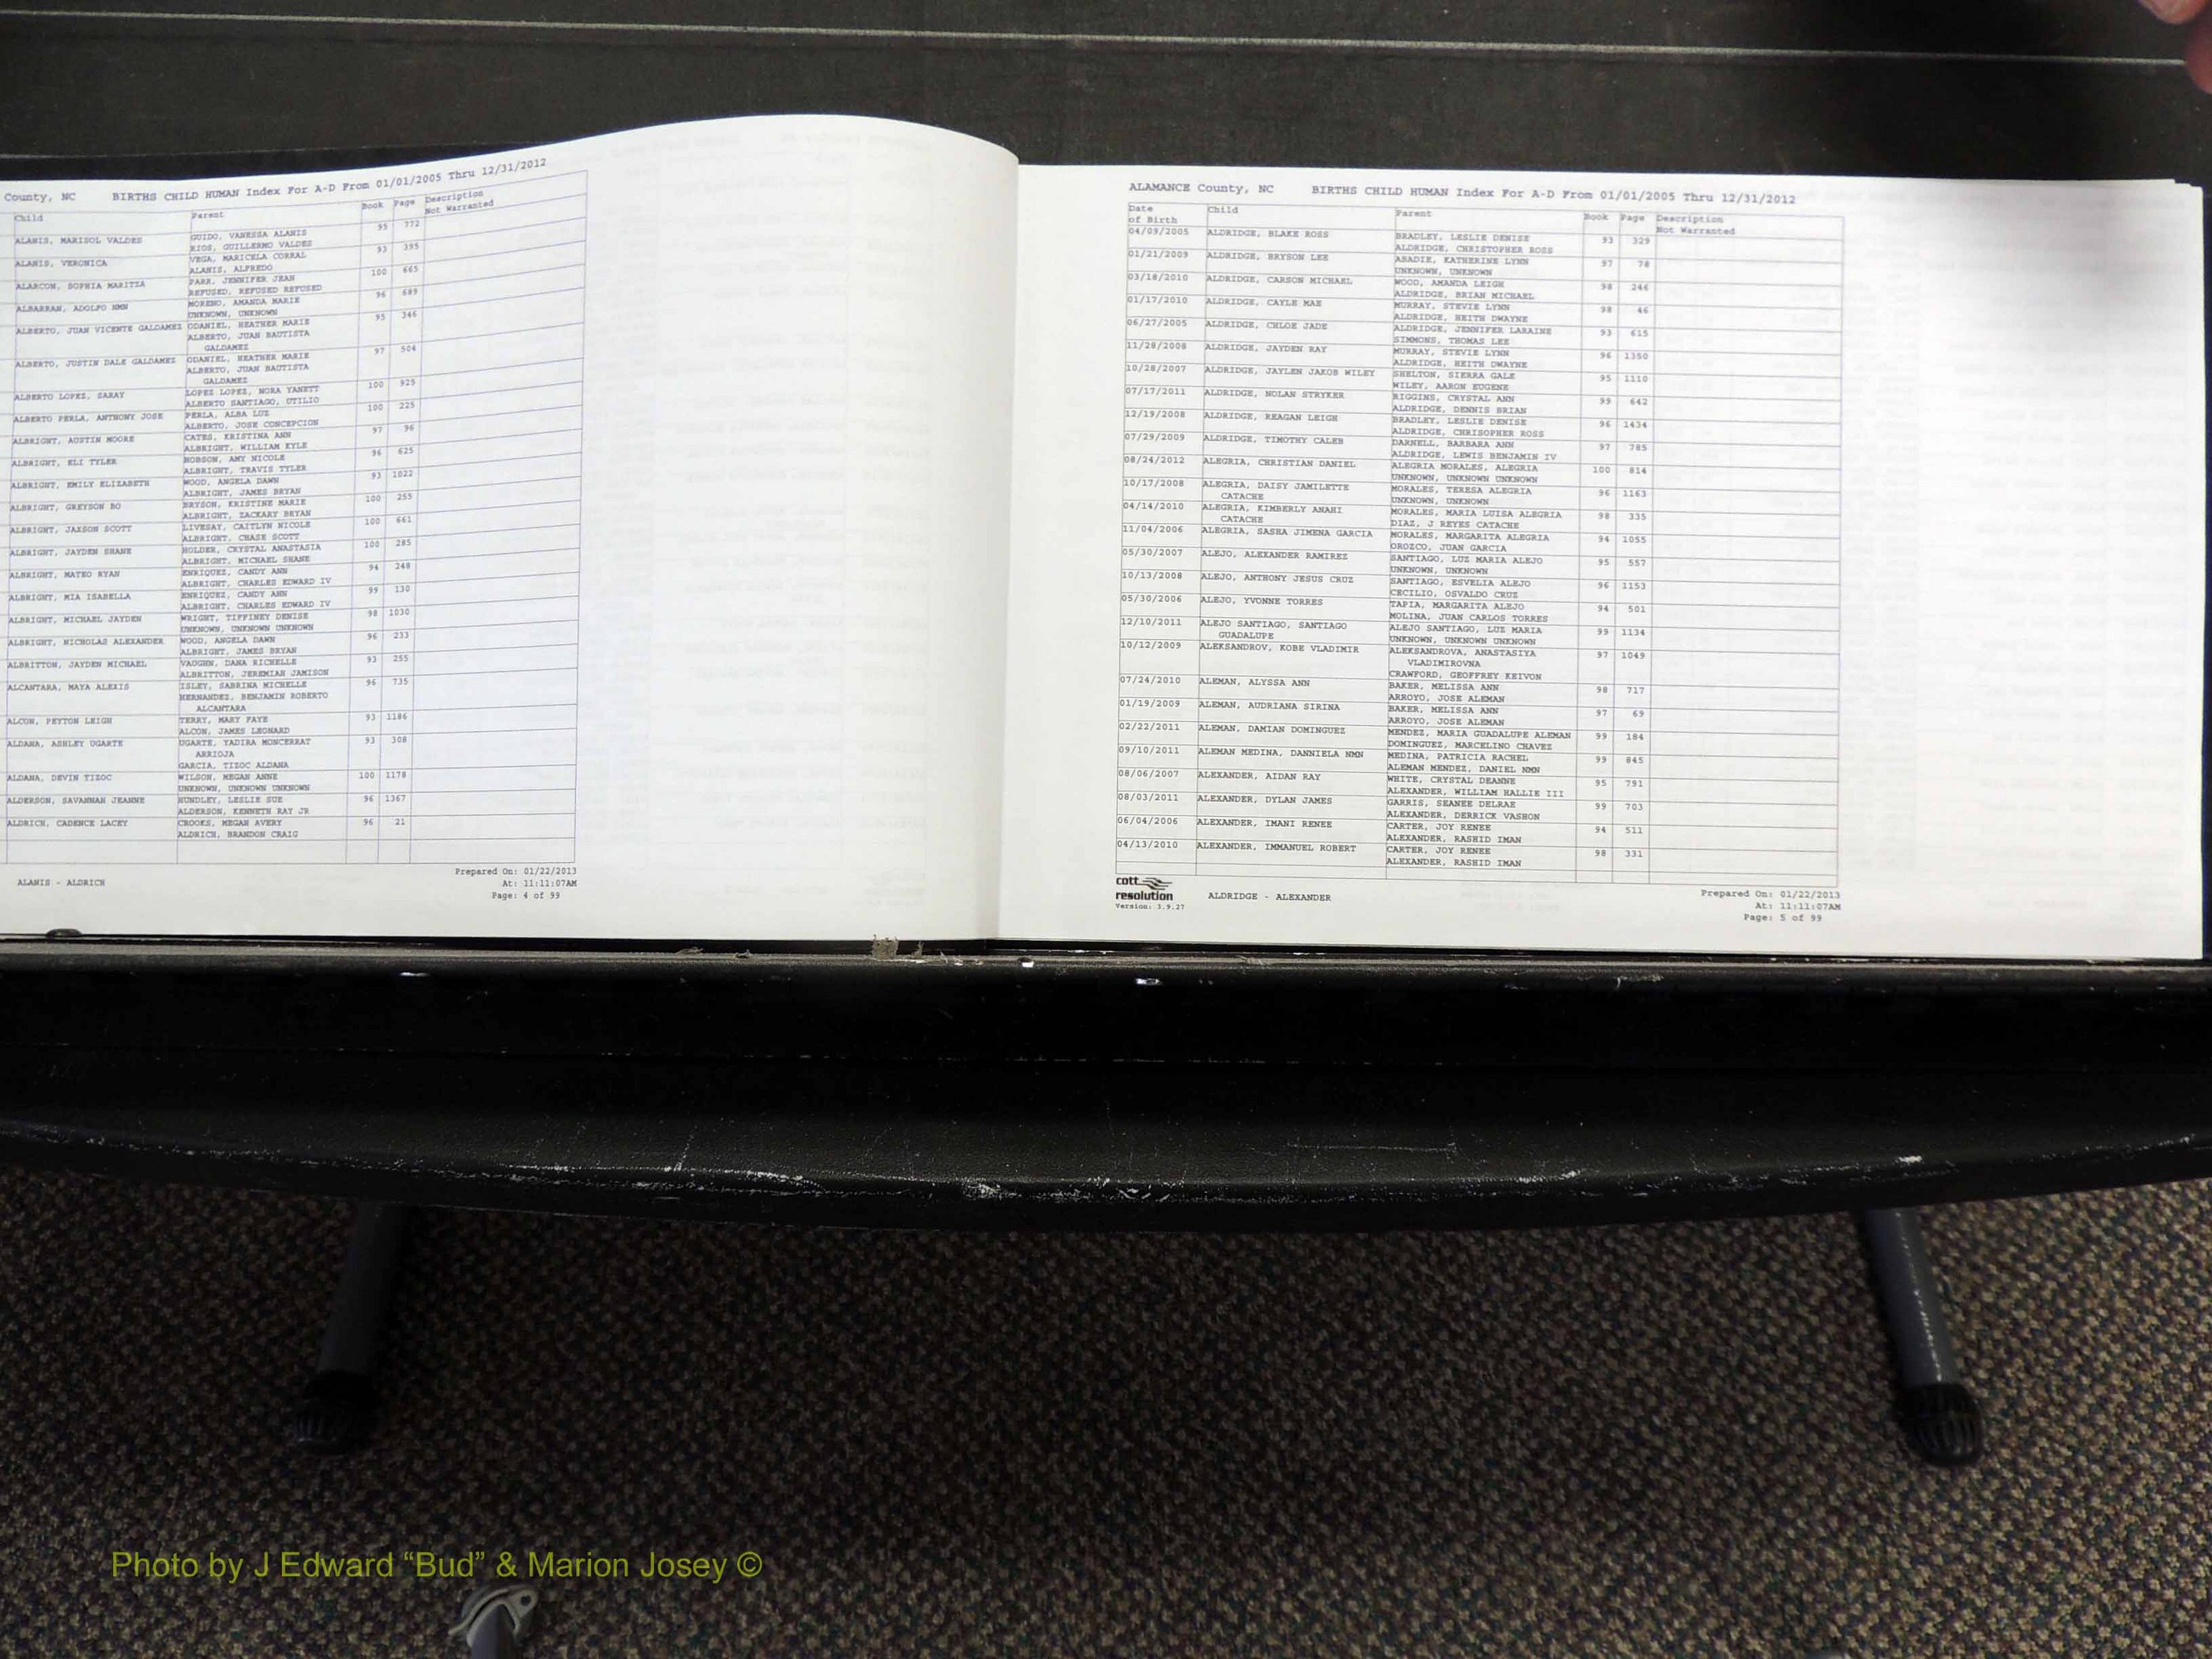 County, NC BIRTHS CHILD HUMAN Index For A-D From 01/01/2005 Thru 12/31/2012
Child Parent Book Page Description
Not Warranted
ALANIS, MARISOL VALDES GUIDO, VANESSA ALANIS 95 772
RIOS, GUILLERMO VALDES
ALANIS, VERONICA VEGA, MARICELA CORRAL 93 395
ALANIS, ALFREDO
ALARCON, SOPHIA MARITZA PARR, JENNIFER JEAN 100 665
REFUSED, REFUSED REFUSED
ALBARRAN, ADOLFO NMN MORENO, AMANDA MARIE 96 689
UNKNOWN, UNKNOWN
ALBERTO, JUAN VICENTE GALDAMEZ ODANIEL, HEATHER MARIE 95 346
ALBERTO, JUAN BAUTISTA
GALDAMEZ
ALBERTO, JUSTIN DALE GALDAMEZ ODANIEL, HEATHER MARIE 97 504
ALBERTO, JUAN BAUTISTA
GALDAMEZ
ALBERTO LOPEZ, SARAY LOPEZ LOPEZ, NORA YANETT 100 925
ALBERTO SANTIAGO, OTILIO
ALBERTO PERLA, ANTHONY JOSE PERLA, ALBA LUZ 100 225
ALBERTO, JOSE CONCEPCION
ALBRIGHT, AUSTIN MOORE CATES, KRISTINA ANN 97 96
ALBRIGHT, WILLIAM KYLE
ALBRIGHT, ELI TYLER HOBSON, AMY NICOLE 96 625
ALBRIGHT, TRAVIS TYLER
ALBRIGHT, EMILY ELIZABETH WOOD, ANGELA DAWN 93 1022
ALBRIGHT, JAMES BRYAN
ALBRIGHT, GREYSON BO BRYSON, KRISTINE MARIE 100 255
ALBRIGHT, ZACKARY BRYAN
ALBRIGHT, JAXSON SCOTT LIVESAY, CAITLYN NICOLE 100 661
ALBRIGHT, CHASE SCOTT
ALBRIGHT, JAYDEN SHANE HOLDER, CRYSTAL ANASTASIA 100 285
ALBRIGHT, MICHAEL SHANE
ALBRIGHT, MATEO RYAN ENRIQUEZ, CANDY ANN 94 248
ALBRIGHT, CHARLES EDWARD IV
ALBRIGHT, MIA ISABELLA ENRIQUEZ, CANDY ANN 99 130
ALBRIGHT, CHARLES EDWARD IV
ALBRIGHT, MICHAEL JAYDEN WRIGHT, TIFFINEY DENISE 98 1030
UNKNOWN, UNKNOWN UNKNOWN
ALBRIGHT, NICHOLAS ALEXANDER WOOD, ANGELA DAWN 96 233
ALBRIGHT, JAMES BRYAN
ALBRITTON, JAYDEN MICHAEL VAUGHN, DANA RICHELLE 93 255
ALBRITTON, JEREMIAH JAMISON
ALCANTARA, MAYA ALEXIS ISLEY, SABRINA MICHELLE 96 735
HERNANDEZ, BENJAMIN ROBERTO
ALCANTARA
ALCON, PEYTON LEIGH TERRY, MARY FAYE 93 1186
ALCON, JAMES LEONARD
ALDANA, ASHLEY UGARTE UGARTE, YADIRA MONCERRAT 93 308
ARRIOJA
GARCIA, TIZOC ALDANA
ALDANA, DEVIN TIZOC WILSON, MEGAN ANNE 100 1178
UNKNOWN, UNKNOWN UNKNOWN
ALDERSON, SAVANNAH JEANNE HUNDLEY, LESLIE SUE 96 1367
ALDERSON, KENNETH RAY JR
ALDRICH, CADENCE LACEY CROOKS, MEGAN AVERY 96 21
ALDRICH, BRANDON CRAIG
ALANIS - ALDRICH
Prepared On: 01/22/2013
At: 11:11:07AM
Page: 4 of 99
ALAMANCE County, NC BIRTHS CHILD HUMAN Index For A-D From 01/01/2005 Thru 12/31/2012
Date Child Parent Book Page Description
of Birth Not Warranted
04/09/2005 ALDRIDGE, BLAKE ROSS BRADLEY, LESLIE DENISE 93 329
ALDRIDGE, CHRISTOPHER ROSS
01/21/2009 ALDRIDGE, BRYSON LEE ABADIE, KATHERINE LYNN 97 78
UNKNOWN, UNKNOWN
03/18/2010 ALDRIDGE, CARSON MICHAEL WOOD, AMANDA LEIGH 98 246
ALDRIDGE, BRIAN MICHAEL
01/17/2010 ALDRIDGE, CAYLE MAE MURRAY, STEVIE LYNN 98 46
ALDRIDGE, HEITH DWAYNE
06/27/2005 ALDRIDGE, CHLOE JADE ALDRIDGE, JENNIFER LARAINE 93 615
SIMMONS, THOMAS LEE
11/28/2008 ALDRIDGE, JAYDEN RAY MURRAY, STEVIE LYNN 96 1350
ALDRIDGE, HEITH DWAYNE
10/28/2007 ALDRIDGE, JAYLEN JAKOB WILEY SHELTON, SIERRA GALE 95 1110
WILEY, AARON EUGENE
07/17/2011 ALDRIDGE, NOLAN STRYKER RIGGINS, CRYSTAL ANN 99 642
ALDRIDGE, DENNIS BRIAN
12/19/2008 ALDRIDGE, REAGAN LEIGH BRADLEY, LESLIE DENISE 96 1434
ALDRIDGE, CHRISOPHER ROSS
07/29/2009 ALDRIDGE, TIMOTHY CALEB DARNELL, BARBARA ANN 97 785
ALDRIDGE, LEWIS BENJAMIN IV
08/24/2012 ALEGRIA, CHRISTIAN DANIEL ALEGRIA MORALES, ALEGRIA 100 814
UNKNOWN, UNKNOWN UNKNOWN
10/17/2008 ALEGRIA, DAISY JAMILETTE MORALES, TERESA ALEGRIA 96 1163
CATACHE UNKNOWN, UNKNOWN
04/14/2010 ALEGRIA, KIMBERLY ANAHI MORALES, MARIA LUISA ALEGRIA 98 335
CATACHE DIAZ, J REYES CATACHE
11/04/2006 ALEGRIA, SASHA JIMENA GARCIA MORALES, MARGARITA ALEGRIA 94 1055
OROZCO, JUAN GARCIA
05/30/2007 ALEJO, ALEXANDER RAMIREZ SANTIAGO, LUZ MARIA ALEJO 95 557
UNKNOWN, UNKNOWN
10/13/2008 ALEJO, ANTHONY JESUS CRUZ SANTIAGO, ESVELIA ALEJO 96 1153
CECILIO, OSVALDO CRUZ
05/30/2006 ALEJO, YVONNE TORRES TAPIA, MARGARITA ALEJO 94 501
MOLINA, JUAN CARLOS TORRES
12/10/2011 ALEJO SANTIAGO, SANTIAGO ALEJO SANTIAGO, LUZ MARIA 99 1134
GUADALUPE UNKNOWN, UNKNOWN UNKNOWN
10/12/2009 ALEKSANDROV, KOBE VLADIMIR ALEKSANDROVA, ANASTASIYA 97 1049
VLADIMIROVNA
CRAWFORD, GEOFFREY KEIVON
07/24/2010 ALEMAN, ALYSSA ANN BAKER, MELISSA ANN 98 717
ARROYO, JOSE ALEMAN
01/19/2009 ALEMAN, AUDRIANA SIRINA BAKER, MELISSA ANN 97 69
ARROYO, JOSE ALEMAN
02/22/2011 ALEMAN, DAMIAN DOMINGUEZ MENDEZ, MARIA GUADALUPE ALEMAN 99 184
DOMINGUEZ, MARCELINO CHAVEZ
09/10/2011 ALEMAN MEDINA, DANNIELA NMN MEDINA, PATRICIA RACHEL 99 845
ALEMAN MENDEZ, DANIEL NMN
08/06/2007 ALEXANDER, AIDAN RAY WHITE, CRYSTAL DEANNE 95 791
ALEXANDER, WILLIAM HALLIE III
08/03/2011 ALEXANDER, DYLAN JAMES GARRIS, SEANEE DELRAE 99 703
ALEXANDER, DERRICK VASHON
06/04/2006 ALEXANDER, IMANI RENEE CARTER, JOY RENEE 94 511
ALEXANDER, RASHID IMAN
04/13/2010 ALEXANDER, IMMANUEL ROBERT CARTER, JOY RENEE 98 331
ALEXANDER, RASHID IMAN
cott
resolution
Version: 3.9.27
ALDRIDGE - ALEXANDER
Prepared On: 01/22/2013
At: 11:11:07AM
Page: 5 of 99
Photo by J Edward “Bud” & Marion Josey ©